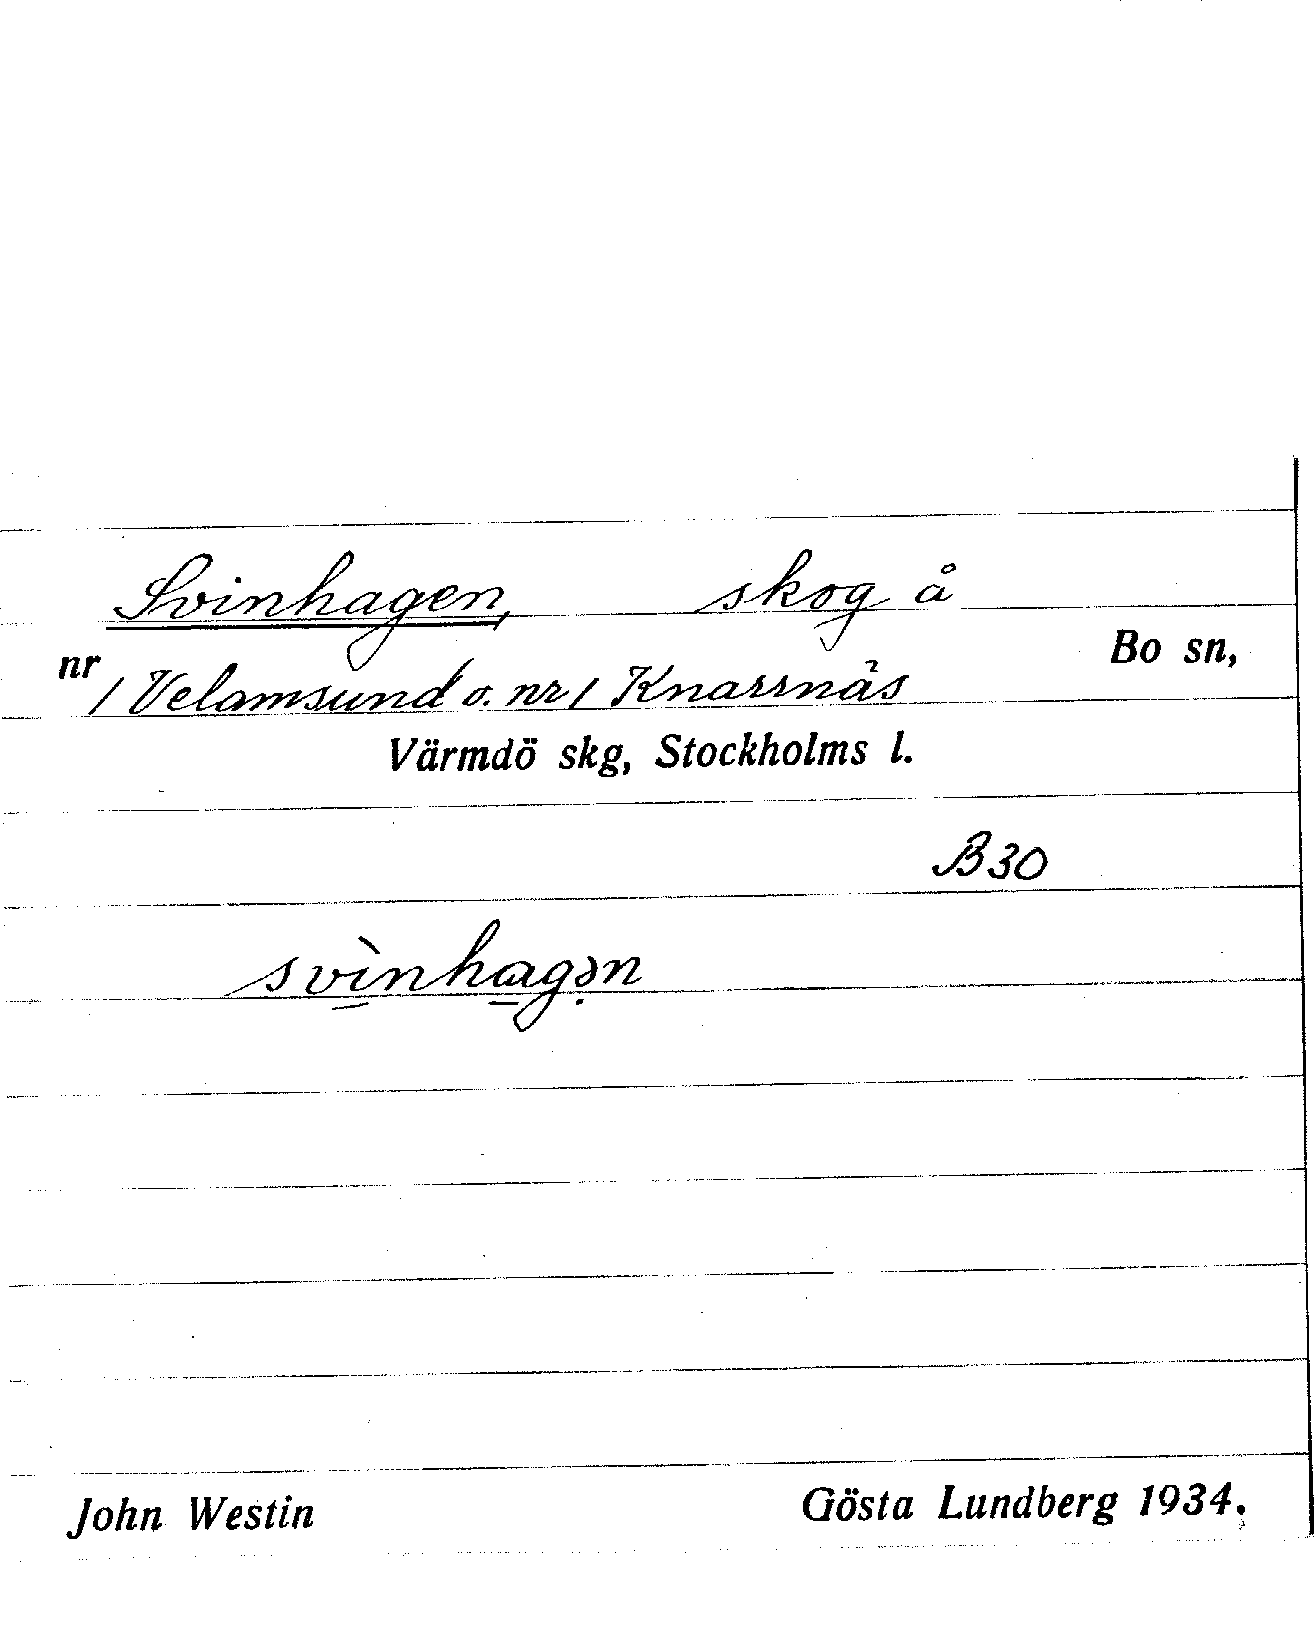 Svinhagen, skog å
Bo sn,
nr 1 Velamsund o. nr 1 Knarrnäs
Värmdö skg, Stockholms l.
B30
svìnhagən
John Westin Gösta Lundberg 1934.